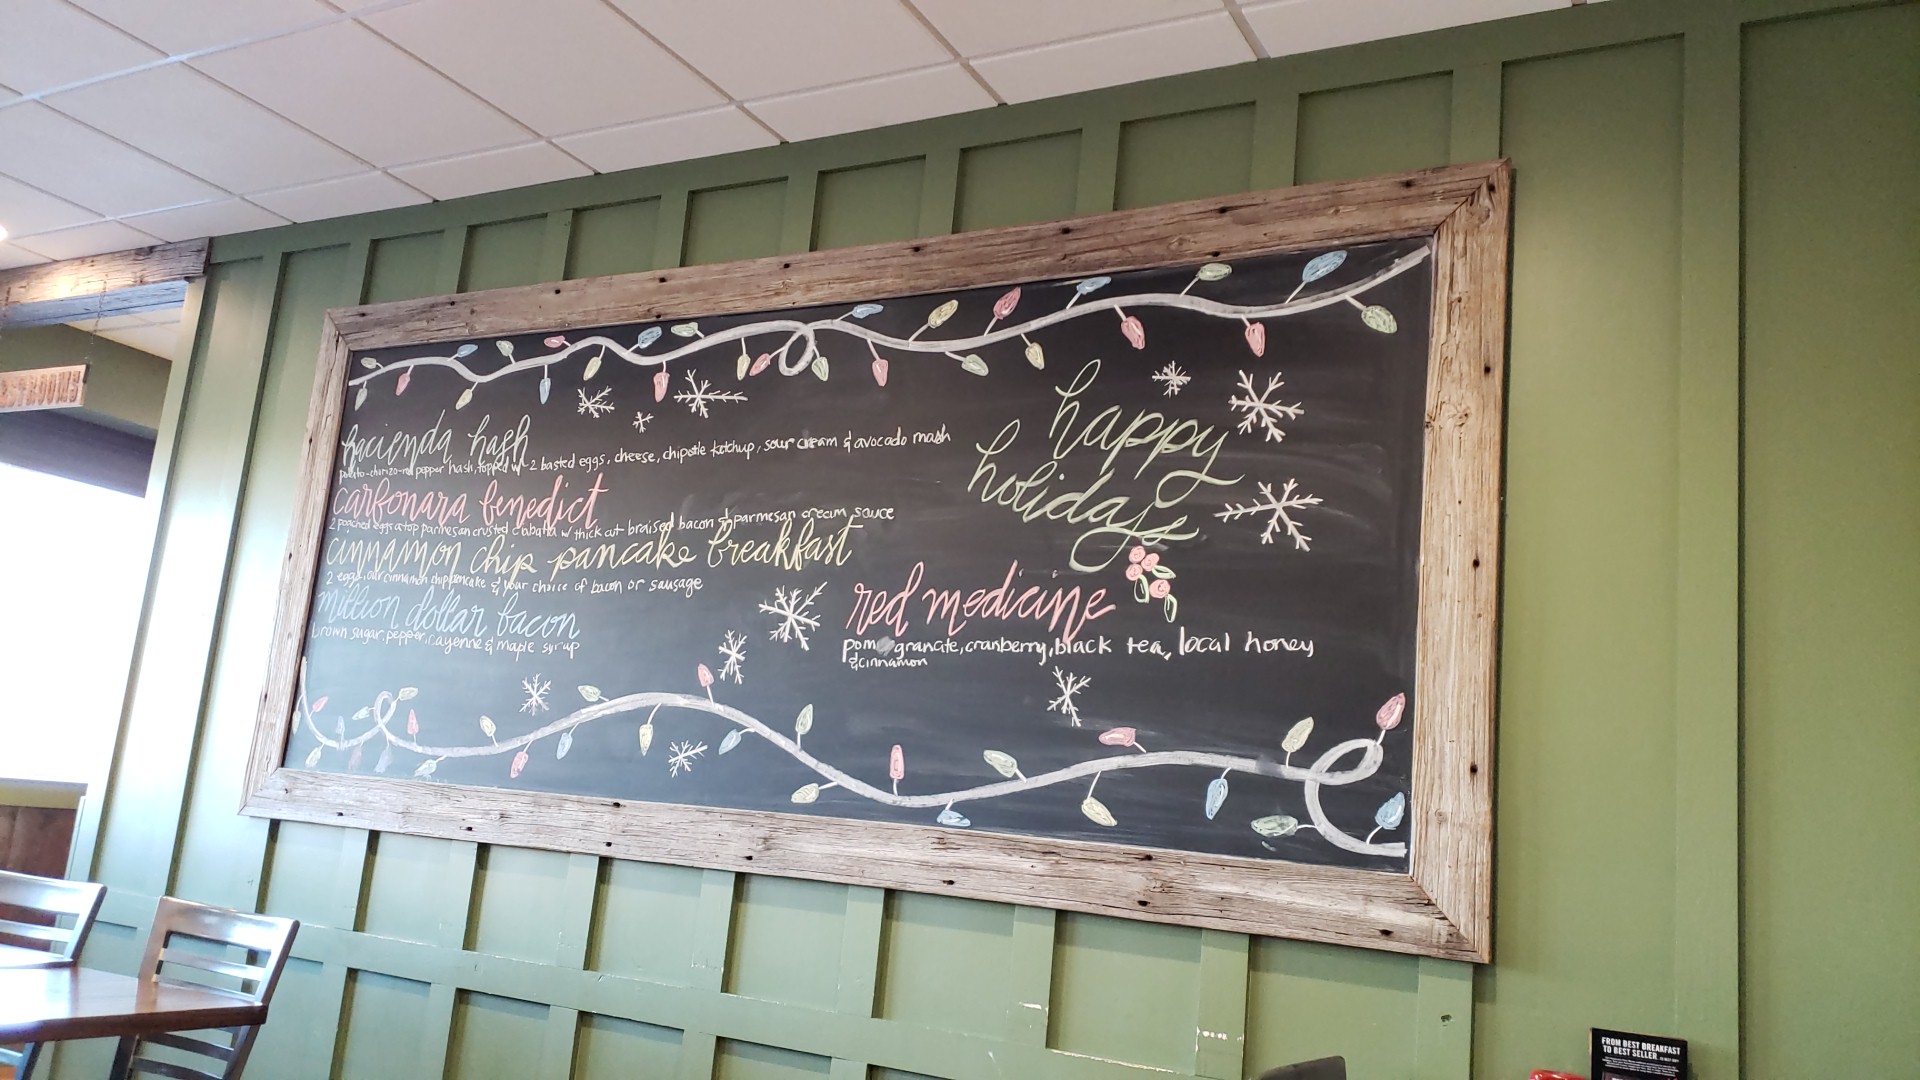 hacienda hash
potato-chorizo-red pepper hash, topped w 2 basted eggs, cheese, chipotle ketchup, sour cream & avocado mash
carbonara benedict
2 poached eggs atop parmesan crusted ciabatta w/ thick cut braised bacon & parmesan cream sauce
cinnamon chip pancake breakfast
2 eggs, our cinnamon chip pancake & your choice of bacon or sausage
million dollar bacon
brown sugar, pepper, cayenne & maple syrup
happy
holidays
red medicine
pomegranate, cranberry, black tea, local honey
& cinnamon
FROM BEST BREAKFAST
TO BEST SELLER